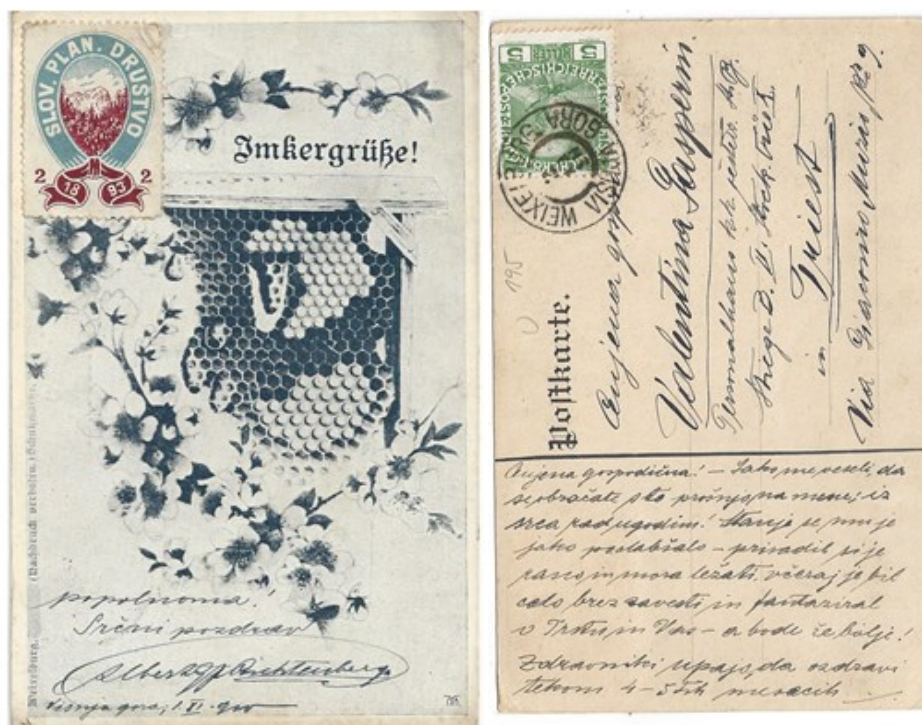 SLOV. PLAN. DRUSTVO
2 1893 2
Imkergrüße!
popolnoma!
Srčni pozdrav
Albert
Višnja gora, 1. VI.
5 5
VIŠNJA GORA
WEIXEL
195
Postkarte.
Cenjena gosp.
Valentina Gasperin
in
Triest
Via Giacomo
Cenjena gospodična! – Jako me veseli, da
se obračate s to prošnjo na mene; iz
srca rad ugodim! Stanje se mu je
jako poslabšalo – prisadil si je
rano in mora ležati, včeraj je bil
celo brez zavesti in fantaziral
o Trstu in Vas – a bode že bolje!
Zdravniki upajo, da ozdravi
tekom 4 – 5 mesecih